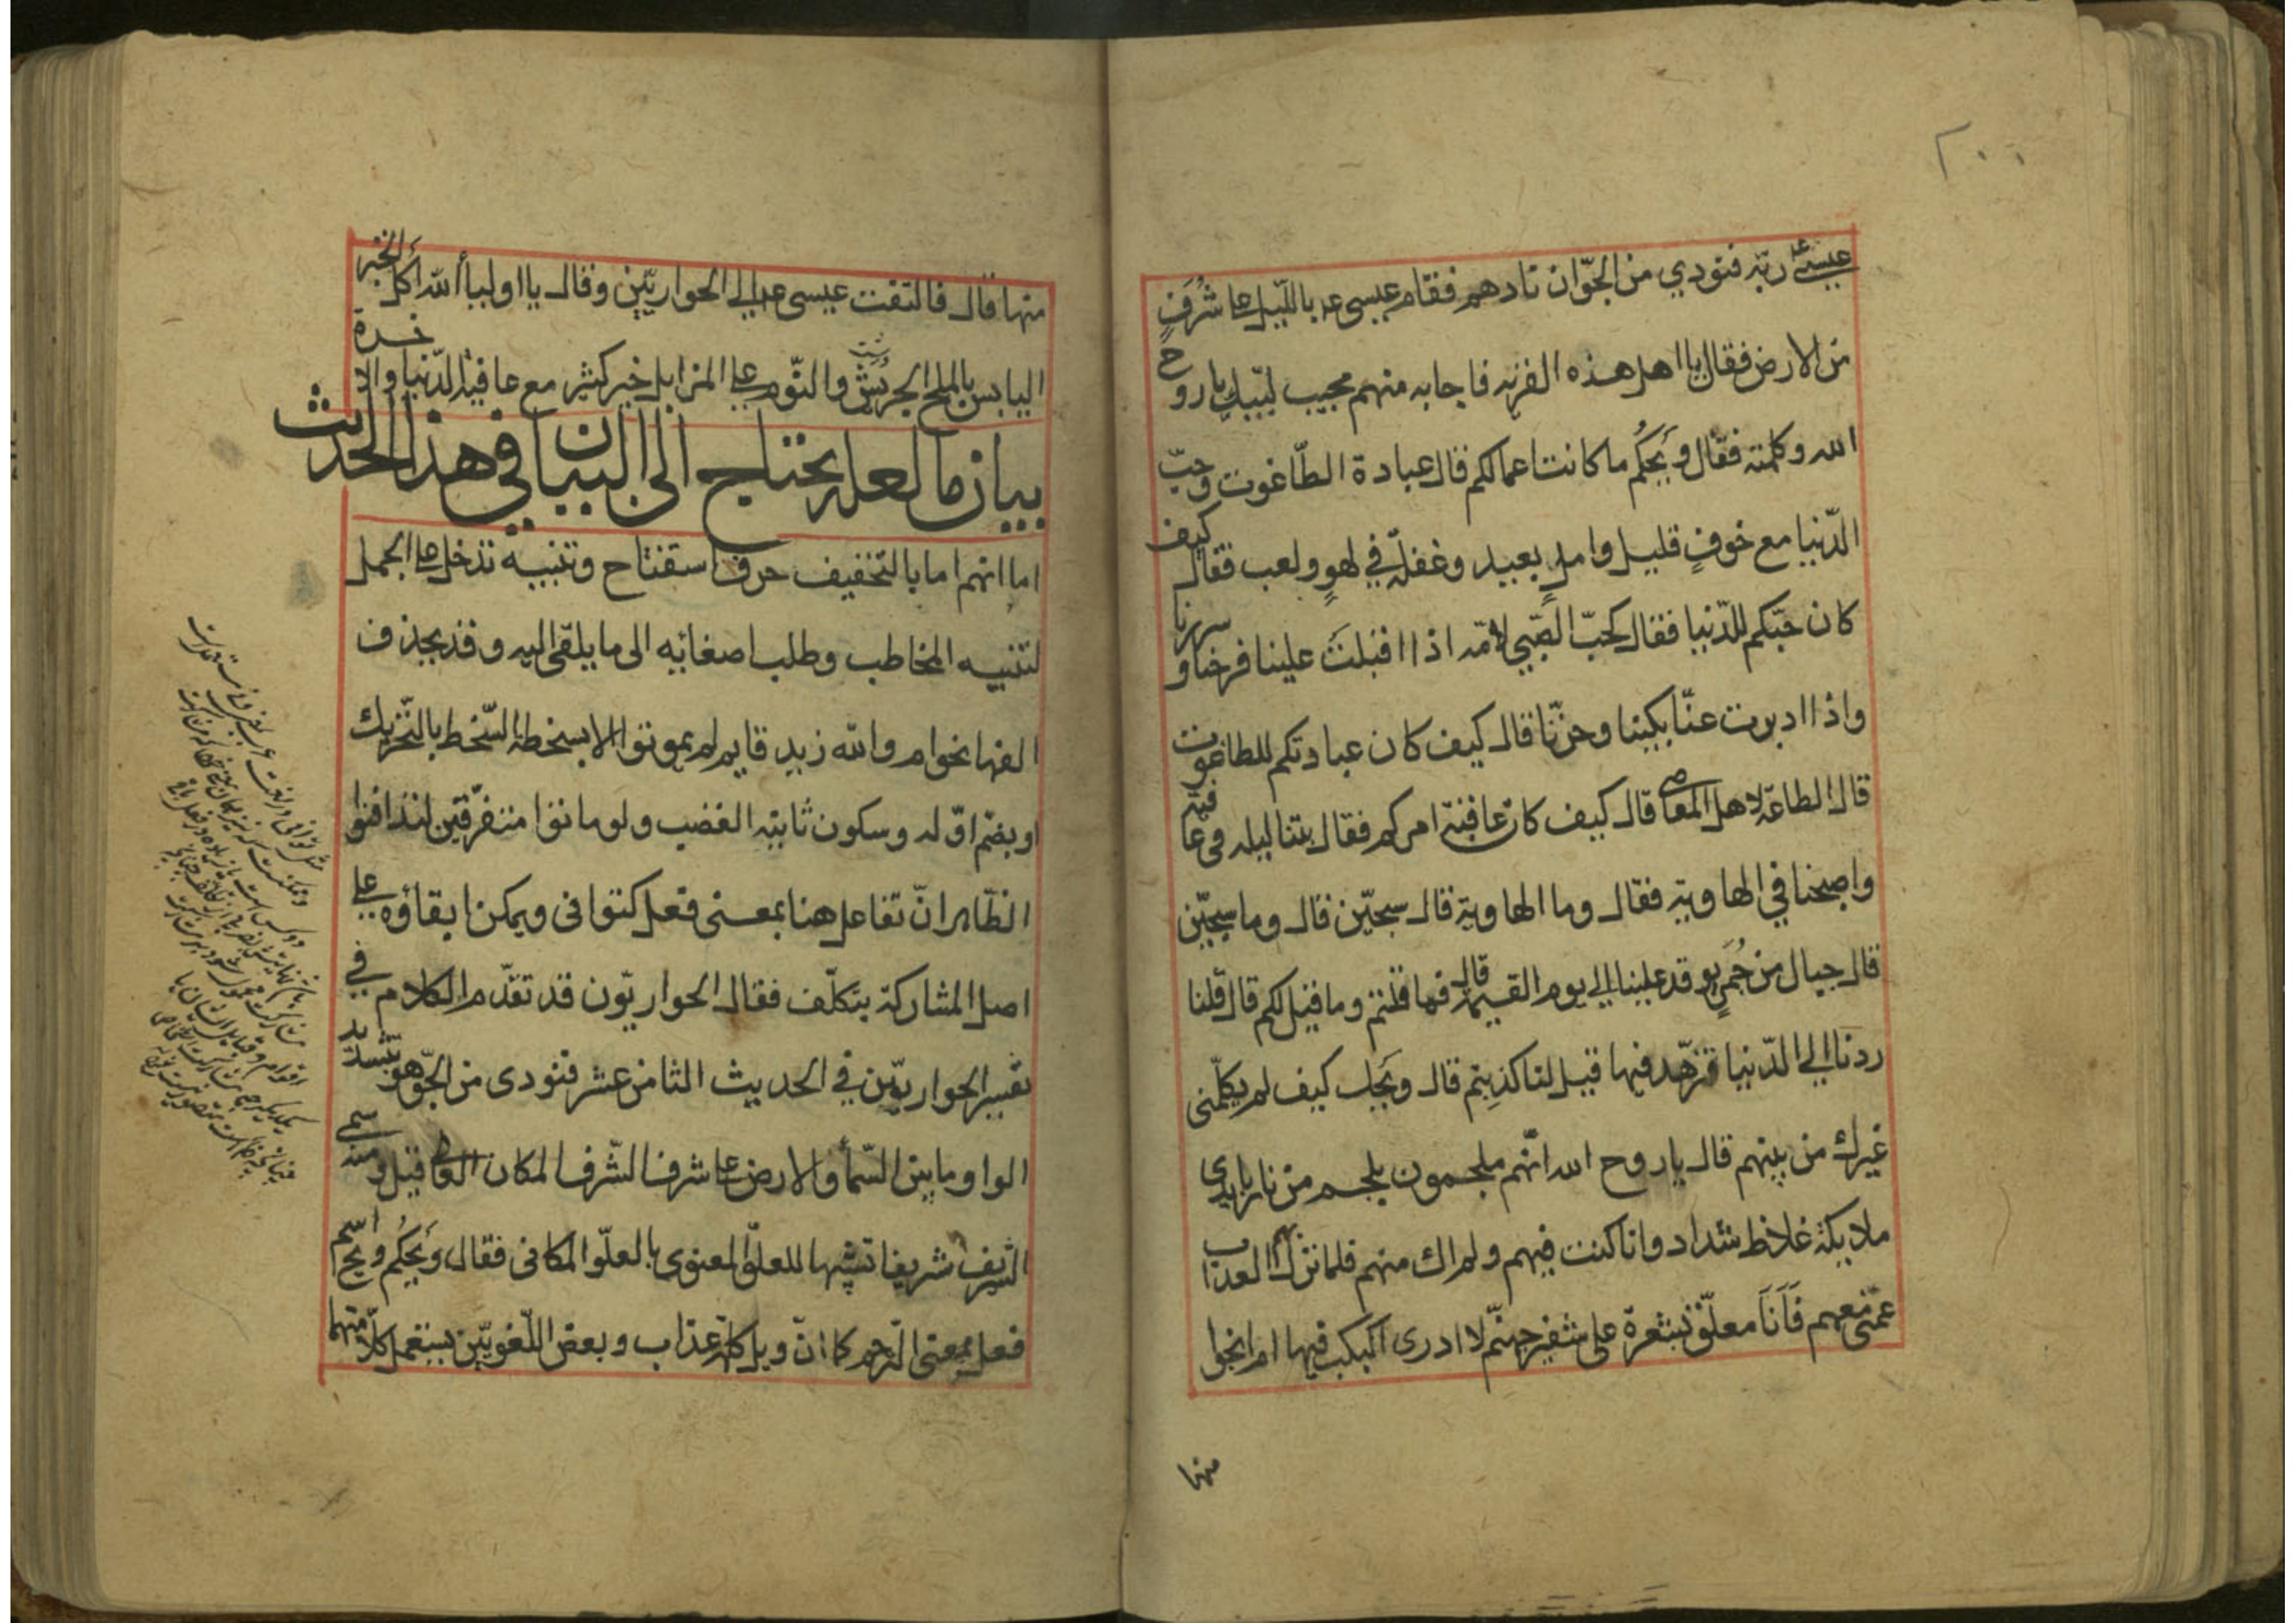 ٢٠٠
عيسى ع ربّه فنودي من الجوّ ان نادهم فقام عيسى ع بالليل على شُرَفٍ
من الارض فقال يا اهل هذه القرية فاجابه منهم مجيب لبّيك يا روح
الله وكلمته فقال ويحكم ما كانت اعمالكم قال عبادة الطّاغوت وحبّ
الدّنيا مع خوفٍ قليل وامل بعيد وغفلة في لهوٍ ولعب فقال كيف
كان حبّكم للدّنيا فقال كحبّ الصّبي لامّه اذا اقبلت علينا فرحنا وسررنا
واذا ادبرت عنّا بكينا وحزنّا قال كيف كان عبادتكم للطاغوت
قال الطاعة لاهل المعاصي قال كيف كان عاقبة امركم فقال بتنا ليله في عافية
واصبحنا في الهاوية فقال وما الهاوية قال سجّين قال وما سجّين
قال جبال من جُمَرٍ يوقد علينا الي يوم القيمة قال فما قلتم وما قيل لكم قال قلنا
ردنا الي الدّنيا فنزهّد فيها قيل لنا كذبتم قال ويحك كيف لم يكلّمنى
غيرك من بينهم قال يا روح الله انّهم ملجمون بلجم من نار بايدى
ملايكة غلاظ شداد وانا كنت فيهم ولم اك منهم فلما نزل العذاب
عمّنى معهم فَاَنَا معلّق بشعرة على شفير جهنّم لا ادرى اكبكب فيها ام انجوا
منها
منها قال فالتفت عيسى ع الي الحواريّين وقال يا اولياأ الله اَكل الخبز
اليابس بالملح الجريش والنّوم على المزابل خير كثير مع عافية الدّنيا والاخرة
بيان ما لعله يحتاج الى البيان في هذا الحديث
اما انهم اما بالتخفيف حرف استفتاح وتنبيه تدخل على الجمل
لتنبيه المخاطب وطلب اصغائه الى ما يلقى اليه وقد يحذف
الفها نحو ام والله زيد قايم لم يموتوا الا بسخطة السّخط بالتّحريك
او بضم اوّله وسكون ثانيه الغضب ولو ماتوا متفرّقين لتدافنوا
الظاهر انّ تفاعل هنا بمعنى فعل كتوانى ويمكن ابقاؤه على
اصل المشاركة بتكلّف فقال الحواريّون قد تقدّم الكلام في
تفسير الحواريّين في الحديث الثامن عشر فنودى من الجوّ هو بتشديد
الواو ما بين السّمأ والارض على شرف الشّرف المكان العالى قيل ومنه سمى
الشريف شريفا تشبيها للعلوّ المعنوى بالعلوّ المكانى فقال ويحكُم ويح اسم
فعل بمعنى الترحم كما انّ ويل كلمة عذاب وبعض اللّغويّين يستعمل كلّا منهما